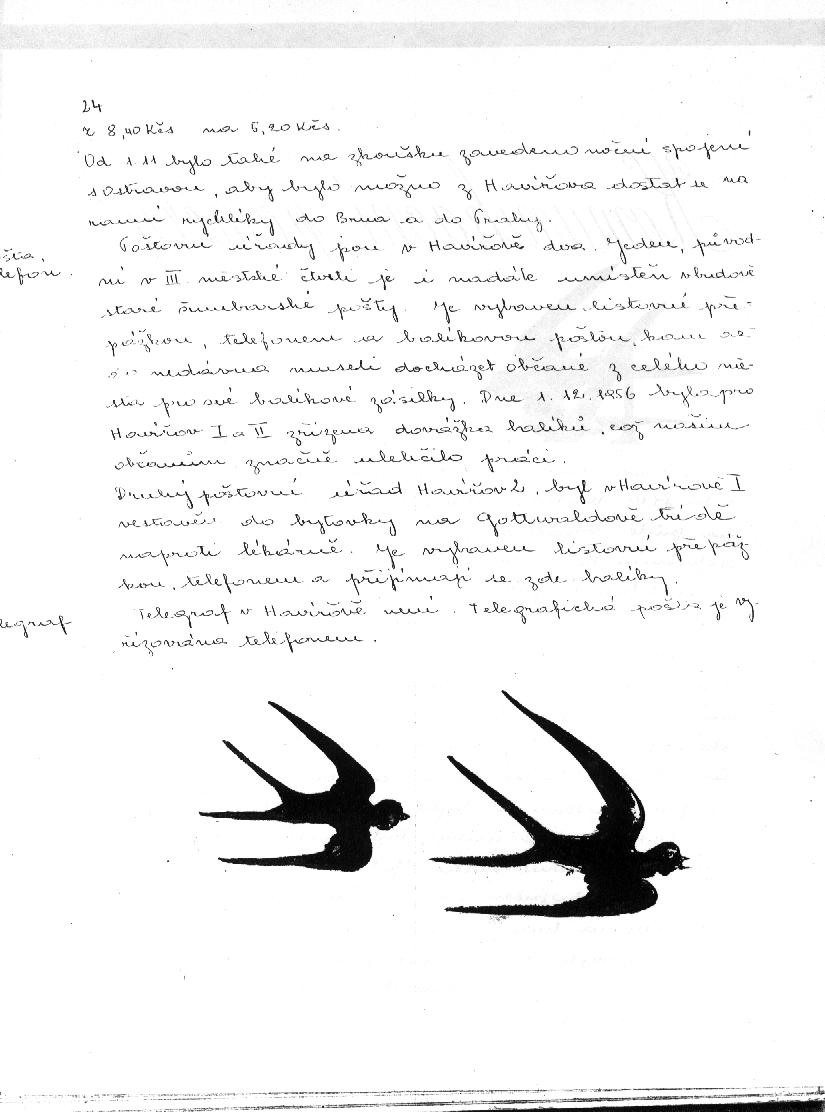 24
z 8,40 Kčs na 5,20 Kčs.
Od 1.11 bylo také na zkoušku zavedeno noční spojení
s Ostravou, aby bylo možno z Havířova dostat se na
ranní rychlíky do Brna a do Prahy.
šta,
lefon.
Poštovní úřady jsou v Havířově dva. Jeden, původ-
ní v III městské čtvrti je i nadále umístěn v budově
staré šumbarské pošty. Je vybaven listovní pře-
pážkou, telefonem a balíkovou poštou, kam až
do nedávna museli docházet občané z celého mě-
sta pro své balíkové zásilky. Dne 1.12.1956 byla pro
Havířov I a II zřízena dovážka balíků, což našim
občanům značně ulehčilo práci.
Druhý poštovní úřad Havířov 2, byl v Havířově I
vestavěn do bytovky na Gottwaldově třídě
naproti lékárně. Je vybaven listovní přepáž-
kou, telefonem a přijímají se zde balíky.
legraf
Telegraf v Havířově není. Telegrafická pošta je vy-
řizována telefonem.